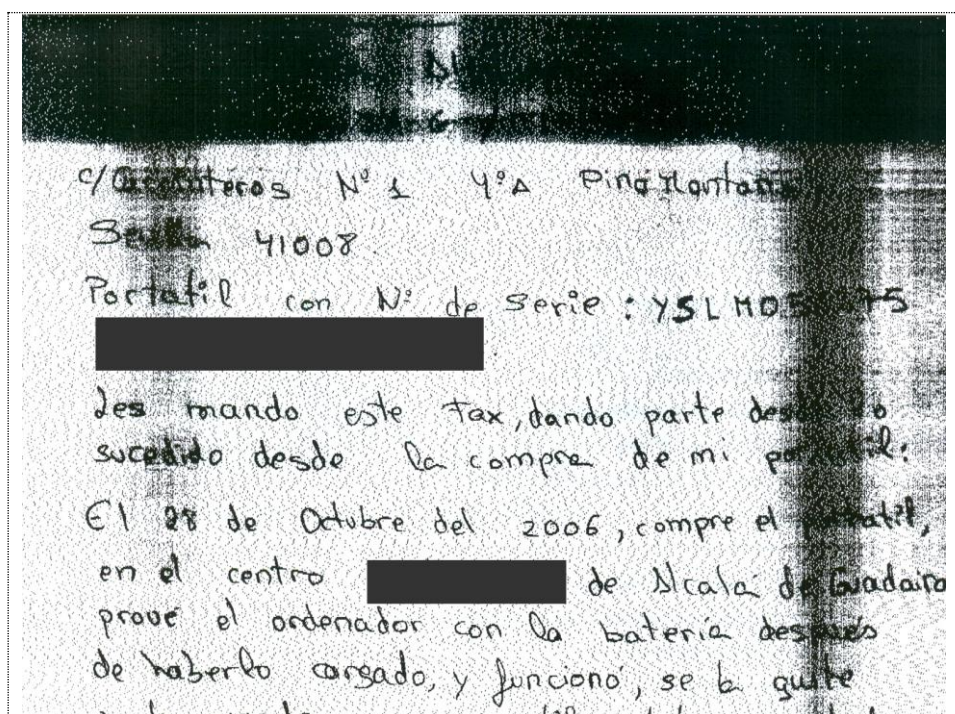 Nº 1 4ºA Pino Montano
Sevilla 41008
Portatil con Nº de Serie : YSLM05 75
Les mando este fax, dando parte des lo
sucedido desde la compra de mi portatil:
El 28 de Octubre del 2006, compre el portatil,
en el centro de Alcalá de Guadaira
prové el ordenador con la batería después
de haberlo cargado, y funcionó, se la quite